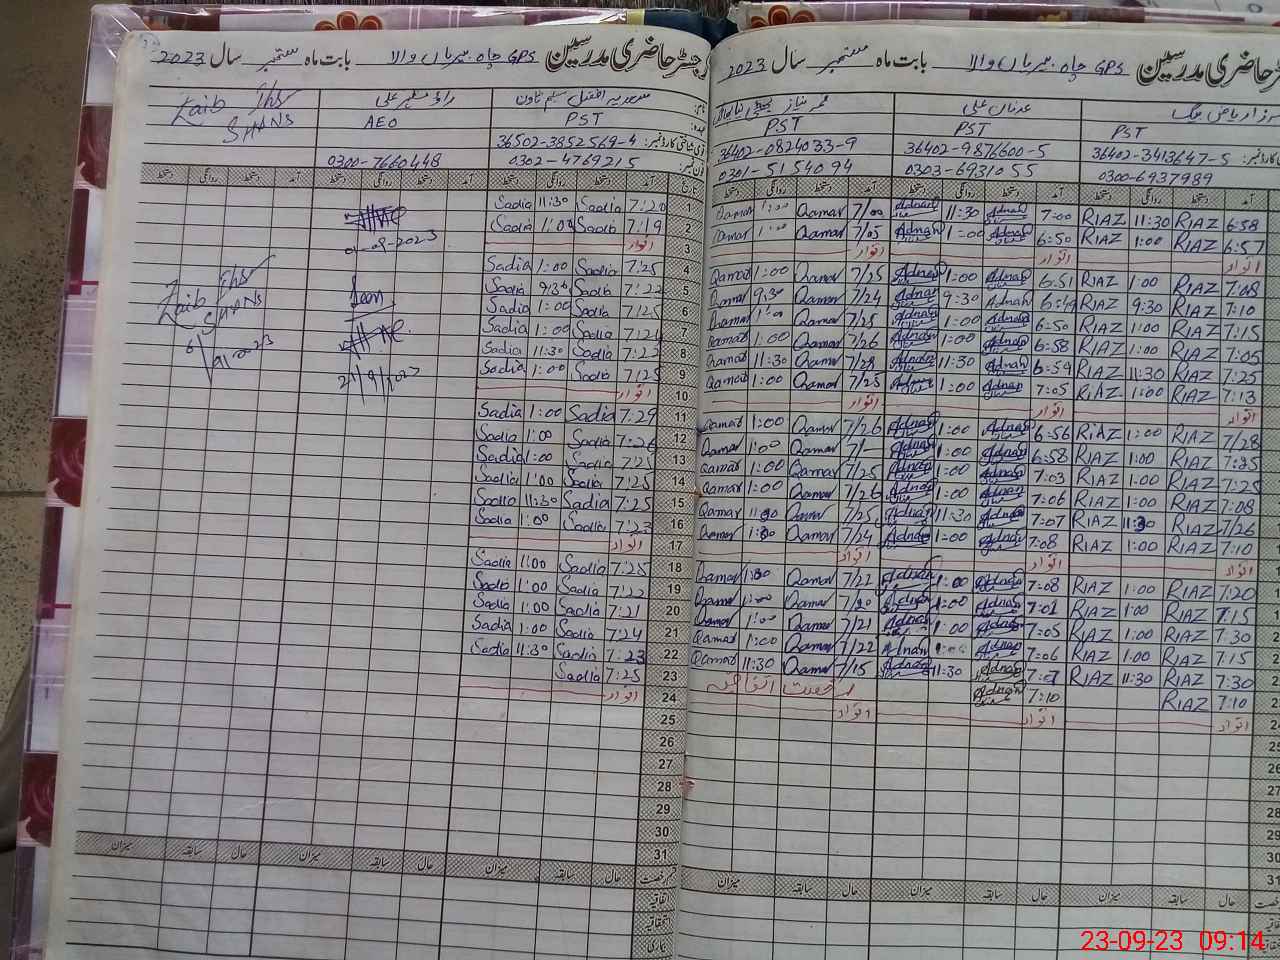 رجسٹر حاضری مدرسین GPS چاہ میریاں والا بابت ماہ ستمبر سال 2023
سعدیہ افضل سلیم خاتون
PST AEO
36502-3852569-4
0302-4769215 0300-7660448
Zaib
SHANS
آمد دستخط روانگی دستخط آمد دستخط روانگی دستخط آمد دستخط روانگی دستخط
1 7:20 Sadia 11:30 Sadia
2 7:19 Sadia 1:00 Sadia
01-09-2023
3 اتوار
4 7:25 Sadia 1:00 Sadia
5 7:22 Sadia 9:30 Sadia
6 7:25 Sadia 1:00 Sadia
7 7:24 Sadia 1:00 Sadia
8 7:22 Sadia 11:30 Sadia
9 7:25 Sadia 1:00 Sadia
10 اتوار
11 7:29 Sadia 1:00 Sadia
12 7:26 Sadia 1:00 Sadia
13 7:25 Sadia 1:00 Sadia
14 7:25 Sadia 1:00 Sadia
15 7:25 Sadia 11:30 Sadia
16 7:23 Sadia 1:00 Sadia
17 اتوار
18 7:25 Sadia 1:00 Sadia
19 7:22 Sadia 1:00 Sadia
20 7:21 Sadia 1:00 Sadia
21 7:24 Sadia 1:00 Sadia
22 7:23 Sadia 11:30 Sadia
23 7:25 Sadia
24 اتوار
25
26
27
28
29
30
31
حال سابقہ میزان حال سابقہ میزان حال سابقہ میزان
رجسٹر حاضری مدرسین GPS چاہ میریاں والا بابت ماہ ستمبر سال 2023
عدنان علی
PST PST PST
36402-3413647-5 36402-9876600-5 36402-0824033-9
0300-6937989 0303-6931055 0301-5154094
6:58 RIAZ 11:30 RIAZ 7:00 Adnan 11:30 Adnan 7/00 Qamar 1:00 Qamar
6:57 RIAZ 1:00 RIAZ 6:50 Adnan 1:00 Adnan 7/05 Qamar 1:00 Qamar
اتوار اتوار اتوار
7:08 RIAZ 1:00 RIAZ 6:51 Adnan 1:00 Adnan 7/25 Qamar 1:00 Qamar
7:10 RIAZ 9:30 RIAZ 6:49 Adnan 9:30 Adnan 7/24 Qamar 9:30 Qamar
7:15 RIAZ 1:00 RIAZ 6:50 Adnan 1:00 Adnan 7/25 Qamar 1:00 Qamar
7:05 RIAZ 1:00 RIAZ 6:58 Adnan 1:00 Adnan 7/26 Qamar 1:00 Qamar
7:25 RIAZ 11:30 RIAZ 6:59 Adnan 11:30 Adnan 7/28 Qamar 11:30 Qamar
7:13 RIAZ 1:00 RIAZ 7:05 Adnan 1:00 Adnan 7/25 Qamar 1:00 Qamar
اتوار اتوار اتوار
7/28 RIAZ 1:00 RIAZ 6:56 Adnan 1:00 Adnan 7/26 Qamar 1:00 Qamar
7:25 RIAZ 1:00 RIAZ 6:58 Adnan 1:00 Adnan Qamar 1:00 Qamar
7:25 RIAZ 1:00 RIAZ 7:03 Adnan 1:00 Adnan 7/25 Qamar 1:00 Qamar
7:08 RIAZ 1:00 RIAZ 7:06 Adnan 1:00 Adnan 7/26 Qamar 1:00 Qamar
7/26 RIAZ 11:30 RIAZ 7:07 Adnan 11:30 Adnan 7/25 Qamar 11:30 Qamar
7:10 RIAZ 1:00 RIAZ 7:08 Adnan 1:00 Adnan 7/24 Qamar 1:00 Qamar
اتوار اتوار اتوار
7:20 RIAZ 1:00 RIAZ 7:08 Adnan 1:00 Adnan 7/22 Qamar 1:00 Qamar
7:15 RIAZ 1:00 RIAZ 7:01 Adnan 1:00 Adnan 7/20 Qamar 1:00 Qamar
7:30 RIAZ 1:00 RIAZ 7:05 Adnan 1:00 Adnan 7/21 Qamar 1:00 Qamar
7:15 RIAZ 1:00 RIAZ 7:06 Adnan 1:00 Adnan 7/22 Qamar 1:00 Qamar
7:30 RIAZ 11:30 RIAZ 7:07 Adnan 11:30 Adnan 7/15 Qamar 11:30 Qamar
7:10 RIAZ 7:10 Adnan رخصت اتفاقیہ
اتوار اتوار اتوار
حال سابقہ میزان حال سابقہ میزان حال سابقہ میزان
23-09-23 09:14